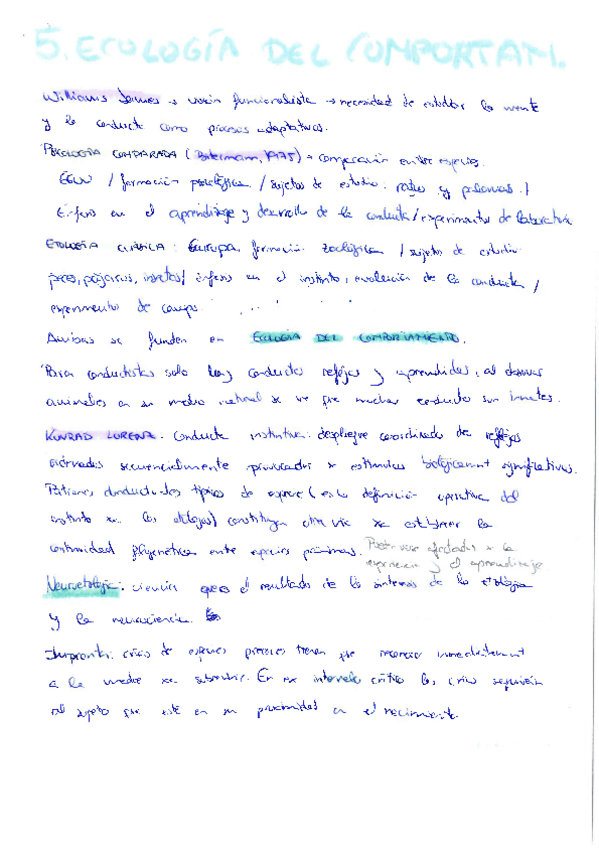 5. ECOLOGÍA DEL COMPORTAM.
Williams James → visión funcionalista → necesidad de estudiar la mente
y la conducta como procesos adaptativos.
PSICOLOGÍA COMPARADA (Bitterman, 1975) → comparación entre especies.
EEUU / formación psicológica / sujetos de estudio: ratas y palomas. /
Énfasis en el aprendizaje y desarrollo de la conducta / experimentos de laboratorio
ETOLOGÍA CLÁSICA: Europa, formación zoológica / sujetos de estudio
peces, pájaros, insectos / énfasis en el instinto, evolución de la conducta /
experimentos de campo
Ambas se funden en ECOLOGÍA DEL COMPORTAMIENTO.
Para conductistas solo hay conductas reflejas y aprendidas, al observar
animales en su medio natural se ve que muchas conductas son innatas.
KONRAD LORENZ. Conducta instintiva: despliegue coordinado de reflejos
ordenados secuencialmente provocados x estímulos biológicament significativos.
Patrones conductuales típicos de especie (es la definición operativa del
instinto xa los etólogos) constituyen otra vía xa establecer la
continuidad filogenética entre especies próximas. Pueden verse afectados x la
experiencia y el aprendizaje
Neuroetología: ciencia que es el resultado de la síntesis de la etología
y la neurociencia.
Impronta: crías de especies precoces tienen que reconocer inmediatament
a la madre xa sobrevivir. En ese intervalo crítico las crías seguirán
al sujeto que esté en su proximidad en el nacimiento.